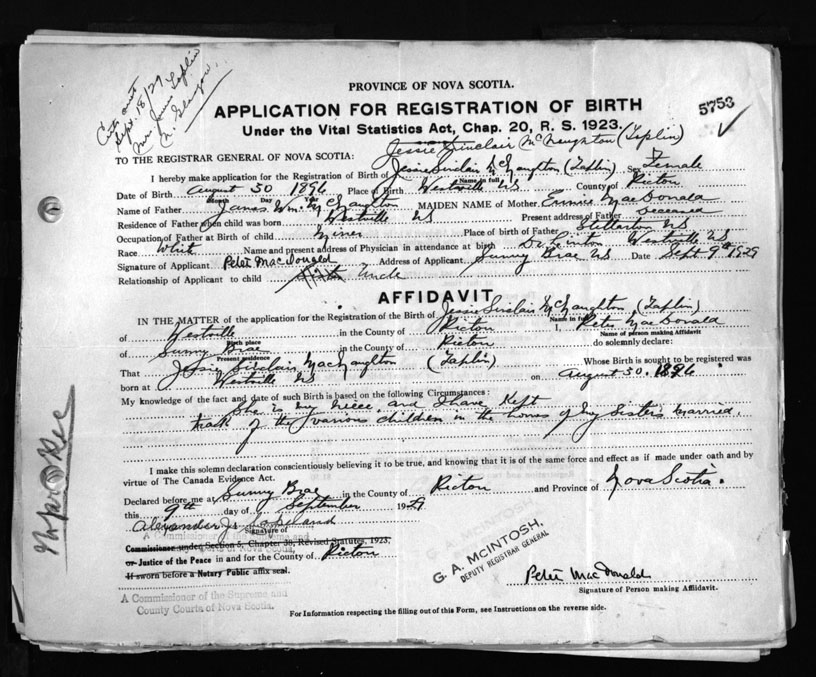 Sept. 18/29
Mrs. Jessie Taplin
N. Glasgow.
PROVINCE OF NOVA SCOTIA.
APPLICATION FOR REGISTRATION OF BIRTH
5753
Under the Vital Statistics Act, Chap. 20, R. S. 1923.
Jessie Sinclair McNaughton (Taplin)
TO THE REGISTRAR GENERAL OF NOVA SCOTIA:
I hereby make application for the Registration of Birth of Jessie Sinclair McNaughton (Taplin) Sex Female
Name in full
Date of Birth August 30 1896 Place of Birth Westville NS County of Pictou
Month Day Year
Name of Father James Wm. McNaughton MAIDEN NAME of Mother Emmie MacDonald
Residence of Father when child was born Westville NS Present address of Father deceased
Occupation of Father at Birth of child Miner Place of birth of Father Stellarton NS
Race White Name and present address of Physician in attendance at birth Dr. Westville NS
Signature of Applicant Peter MacDonald Address of Applicant Sunny Brae NS Date Sept 9th 1929
Relationship of Applicant to child Uncle
AFFIDAVIT
IN THE MATTER of the application for the Registration of Birth of Jessie Sinclair McNaughton (Taplin)
Name in full
of Westville in the County of Pictou I, Peter MacDonald
Birth place Name of person making Affidavit
of Sunny Brae in the County of Pictou do solemnly declare:
Present residence
That Jessie Sinclair MacNaughton (Taplin) Whose Birth is sought to be registered was
born at Westville NS on August 30. 1896
My knowledge of the fact and date of such Birth is based on the following Circumstances:
She is my niece and I have kept
track of the various children in the homes of my sisters married.
I make this solemn declaration conscientiously believing it to be true, and knowing that it is of the same force and effect as if made under oath and by
virtue of The Canada Evidence Act.
Declared before me at Sunny Brae in the County of Pictou and Province of Nova Scotia.
this 9th day of September 1929
Alexander J.
Signature of
Commissioner under Section 5, Chapter 38, Revised Statutes, 1923,
or Justice of the Peace in and for the County of Pictou
If sworn before a Notary Public affix seal.
A Commissioner of the Supreme and
County Courts of Nova Scotia.
G. A. MCINTOSH,
DEPUTY REGISTRAR GENERAL
Peter MacDonald
Signature of Person making Affidavit.
For Information respecting the filling out of this Form, see Instructions on the reverse side.